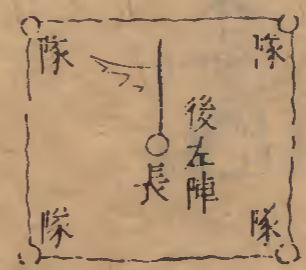 隊
隊
後左陣
長
隊
隊